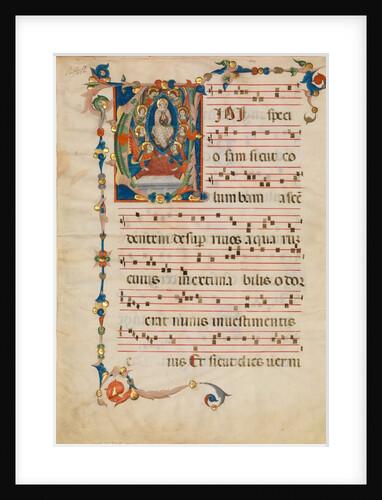 IDI speci
osam sicut co
lumbam ascē
dentem desup rivos aquaruz
cuius inextima bilis odor
erat nimis in vestimentis
eius Et sicut dies verni